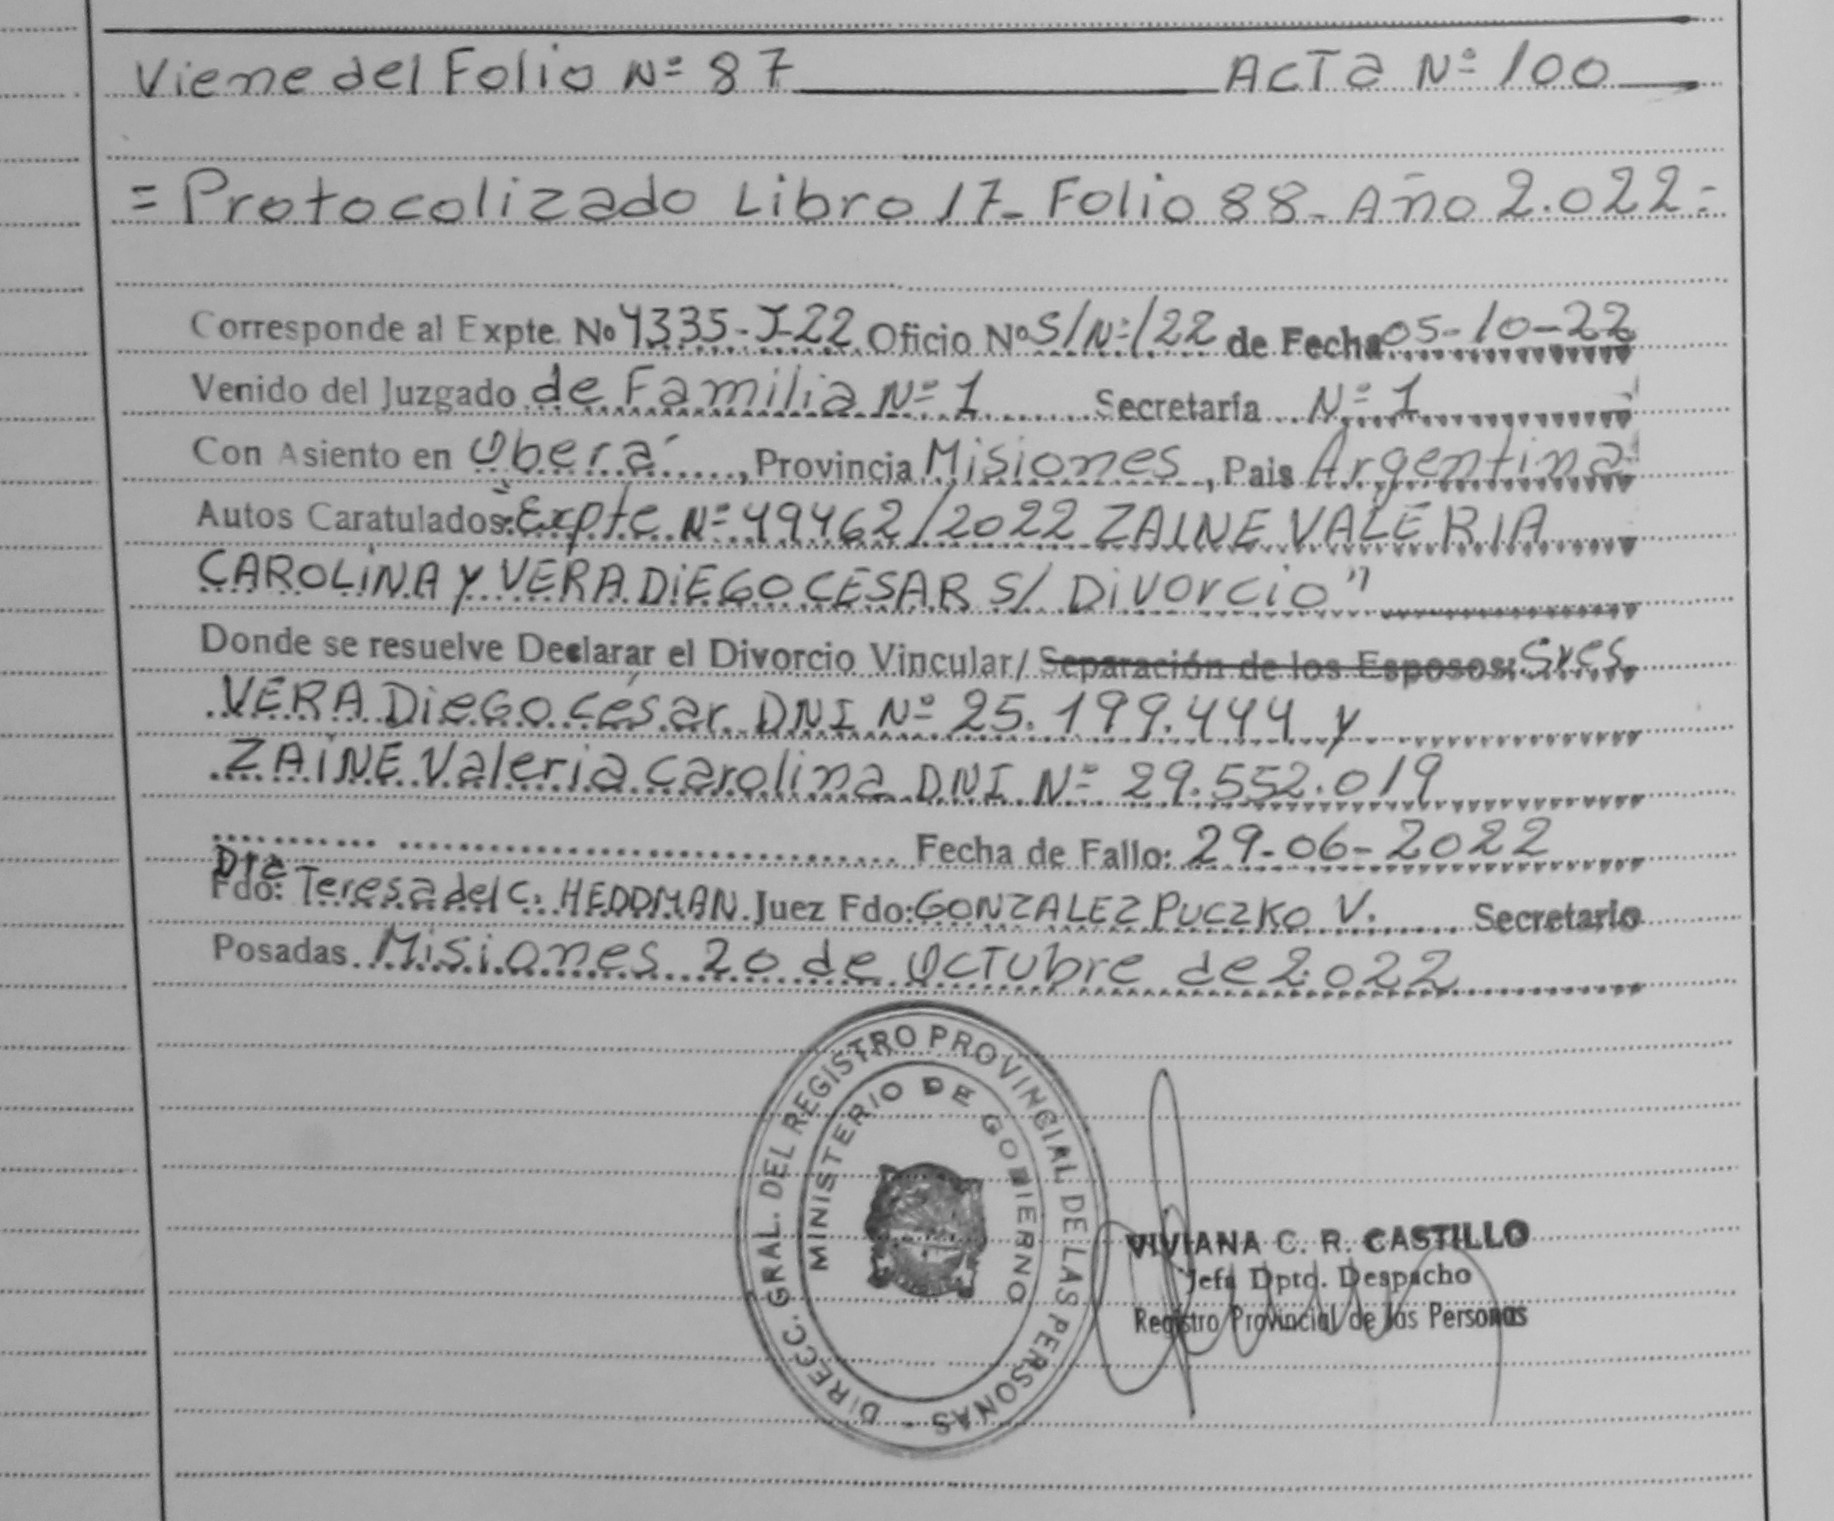 Viene del Folio Nº 87 ACTA Nº 100
= Protocolizado Libro 17- Folio 88- Año 2.022=
Corresponde al Expte. Nº 4335-J-22 Oficio Nº S/Nº/22 de Fecha 05-10-22
Venido del Juzgado de Familia Nº 1 Secretaría Nº 1
Con Asiento en Oberá, Provincia Misiones, Pais Argentina
Autos Caratulados: "Expte Nº 49462/2022 ZAINE VALERIA
CAROLINA y VERA DIEGO CESAR S/ Divorcio"
Donde se resuelve Declarar el Divorcio Vincular/ Separación de los Esposos: Sres.
VERA Diego César DNI Nº 25.199.444 y
ZAINE Valeria Carolina DNI Nº 29.552.019
Fecha de Fallo: 29-06-2022
Dra
Fdo: Teresa del C. HEDDMAN. Juez Fdo: GONZALEZ PUCZKO V. Secretario
Posadas Misiones 20 de Octubre de 2.022
DIRECC. GRAL. DEL REGISTRO PROVINCIAL DE LAS PERSONAS -
MINISTERIO DE GOBIERNO
VIVIANA C. R. CASTILLO
Jefa Dpto. Despacho
Registro Provincial de las Personas